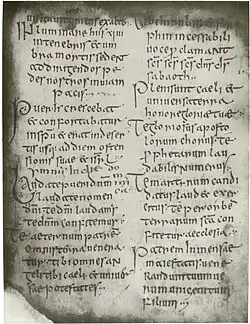 Inluminare his qui
in tenebris & um
bra mortis sedent
ad dirigendos pe
des nostros in uiam
pacis
Puer h̄ crescebat
& confortabatur
in spu & erat in deser
tis usq; ad diem osten
sionis suae
Laudate pueri dnm
Laudate nomen
dni te dm laudamus
te dnm confitemur
Te aeternum patrē
omnis terra uenera
tur tibi omnes an
geli tibi caeli & uniuer
sae potestates
phin incessabili
uoce proclamant
scs scs scs dns ds
sabaoth
Pleni sunt caeli &
uniuersa terra
honore gloriae tuae
Te gloriosus aposto
lorum chorus te
profetarum lau
dabilis numerus
Te martyrum candi
datus laudat exer
citus te per orbem
terrarum sca con
fitetur aeclesia
Patrem inmensae
maiestatis uene
randum tuum ue
rum unigenitum
filium